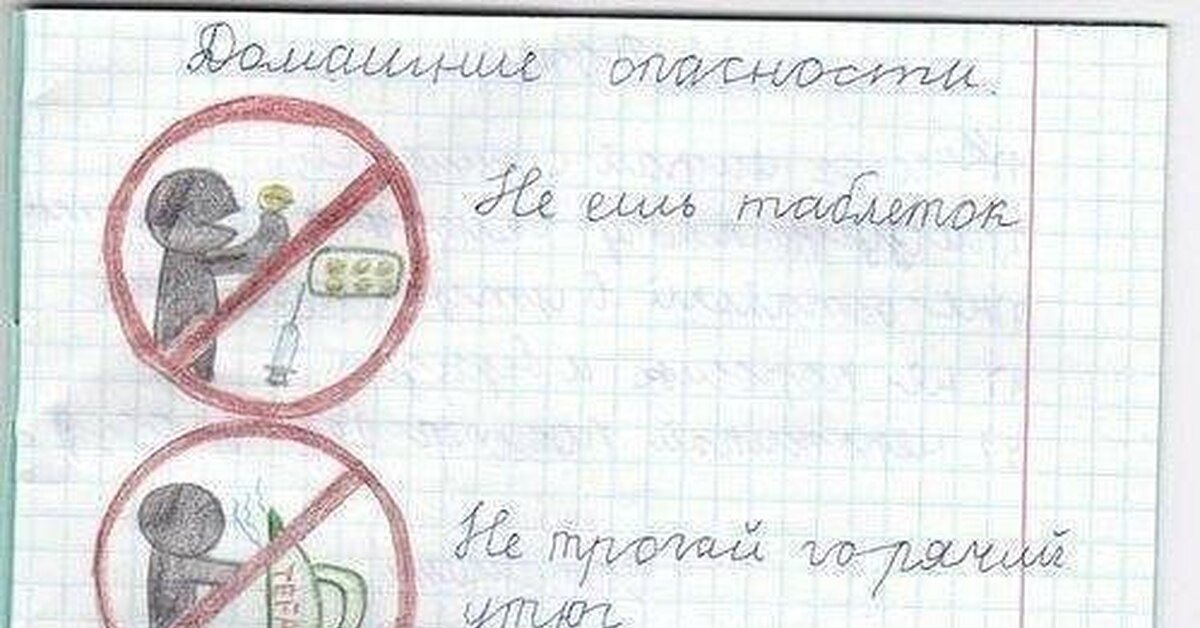 Домашние опасности.
Не ешь таблеток
Не трогай горячий
утюг